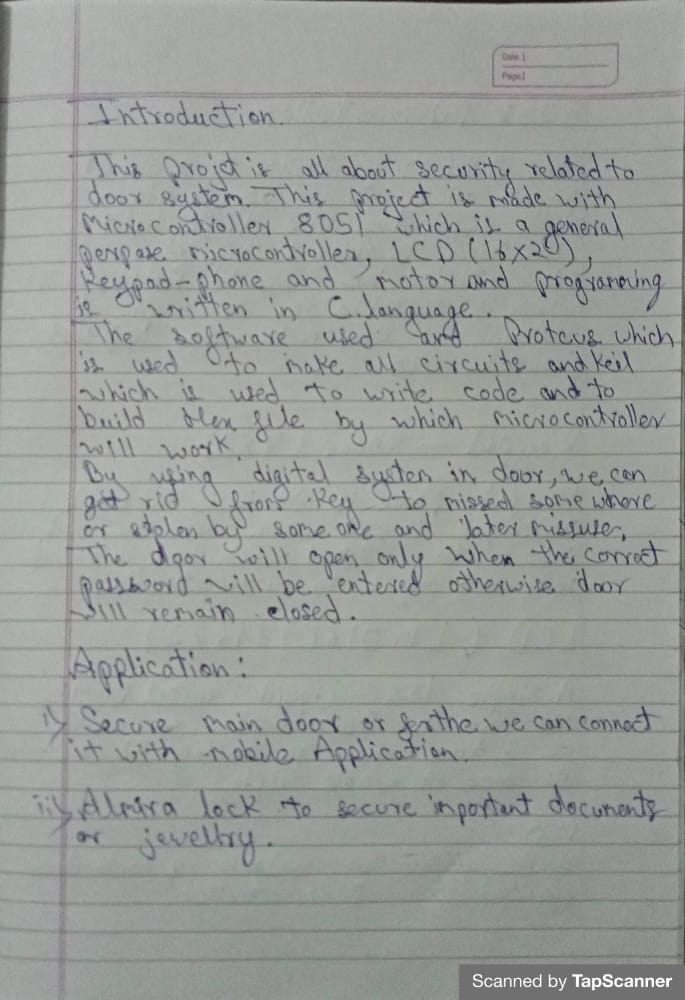 Date |
Page |
Introduction.
This projct is all about security related to
door system. This project is made with
Microcontroller 8051 which is a general
perpose microcontroller, LCD (16x20),
Keypad-phone and motor and programming
is written in C.language.
The software used and Proteus which
is used to make all circuits and Keil
which is used to write code and to
build Hex file by which microcontroller
will work.
By using digital system in door, we can
get rid from key to missed some where
or stolen by some one and later missuse,
The door will open only when the correct
password will be entered otherwise door
will remain closed.
Application:
i) Secure main door or ferthe we can connect
it with mobile Application.
ii) Almira lock to secure important documents
or jewellry.
Scanned by TapScanner